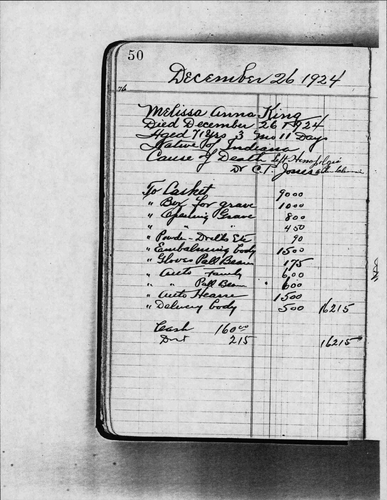 50
December 26 1924
Melissa Anna King
Died December 26 1924
Aged 71 yrs 3 mo 11 Days
Native of Indiana
Cause of Death left Hemiplegia
Dr C.T. Jones
To Casket 9000
" Box for grave 1000
" Opening Grave 800
" " " 450
" Powder - Drills Etc 90
" Embalming body 1500
" Gloves Pall Bear 175
" Auto Family 600
" " Pall Bear 600
" Auto Hearse 1500
" Delivery body 500 16215
Cash 160 00
Disct 215 16215